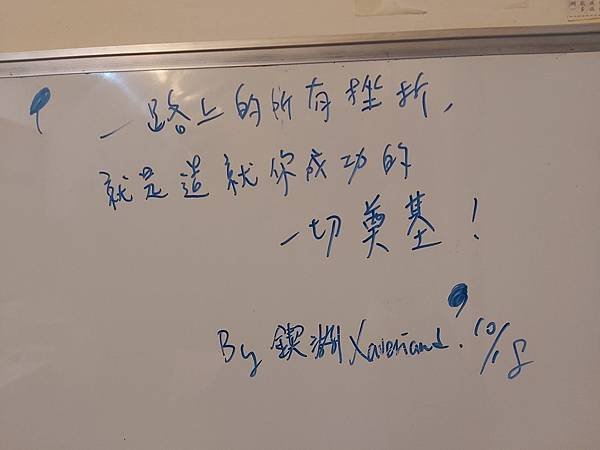 一路上的所有挫折,
就是造就你成功的
一切奠基!
By 鍥澍 Xaveriand. 10/8